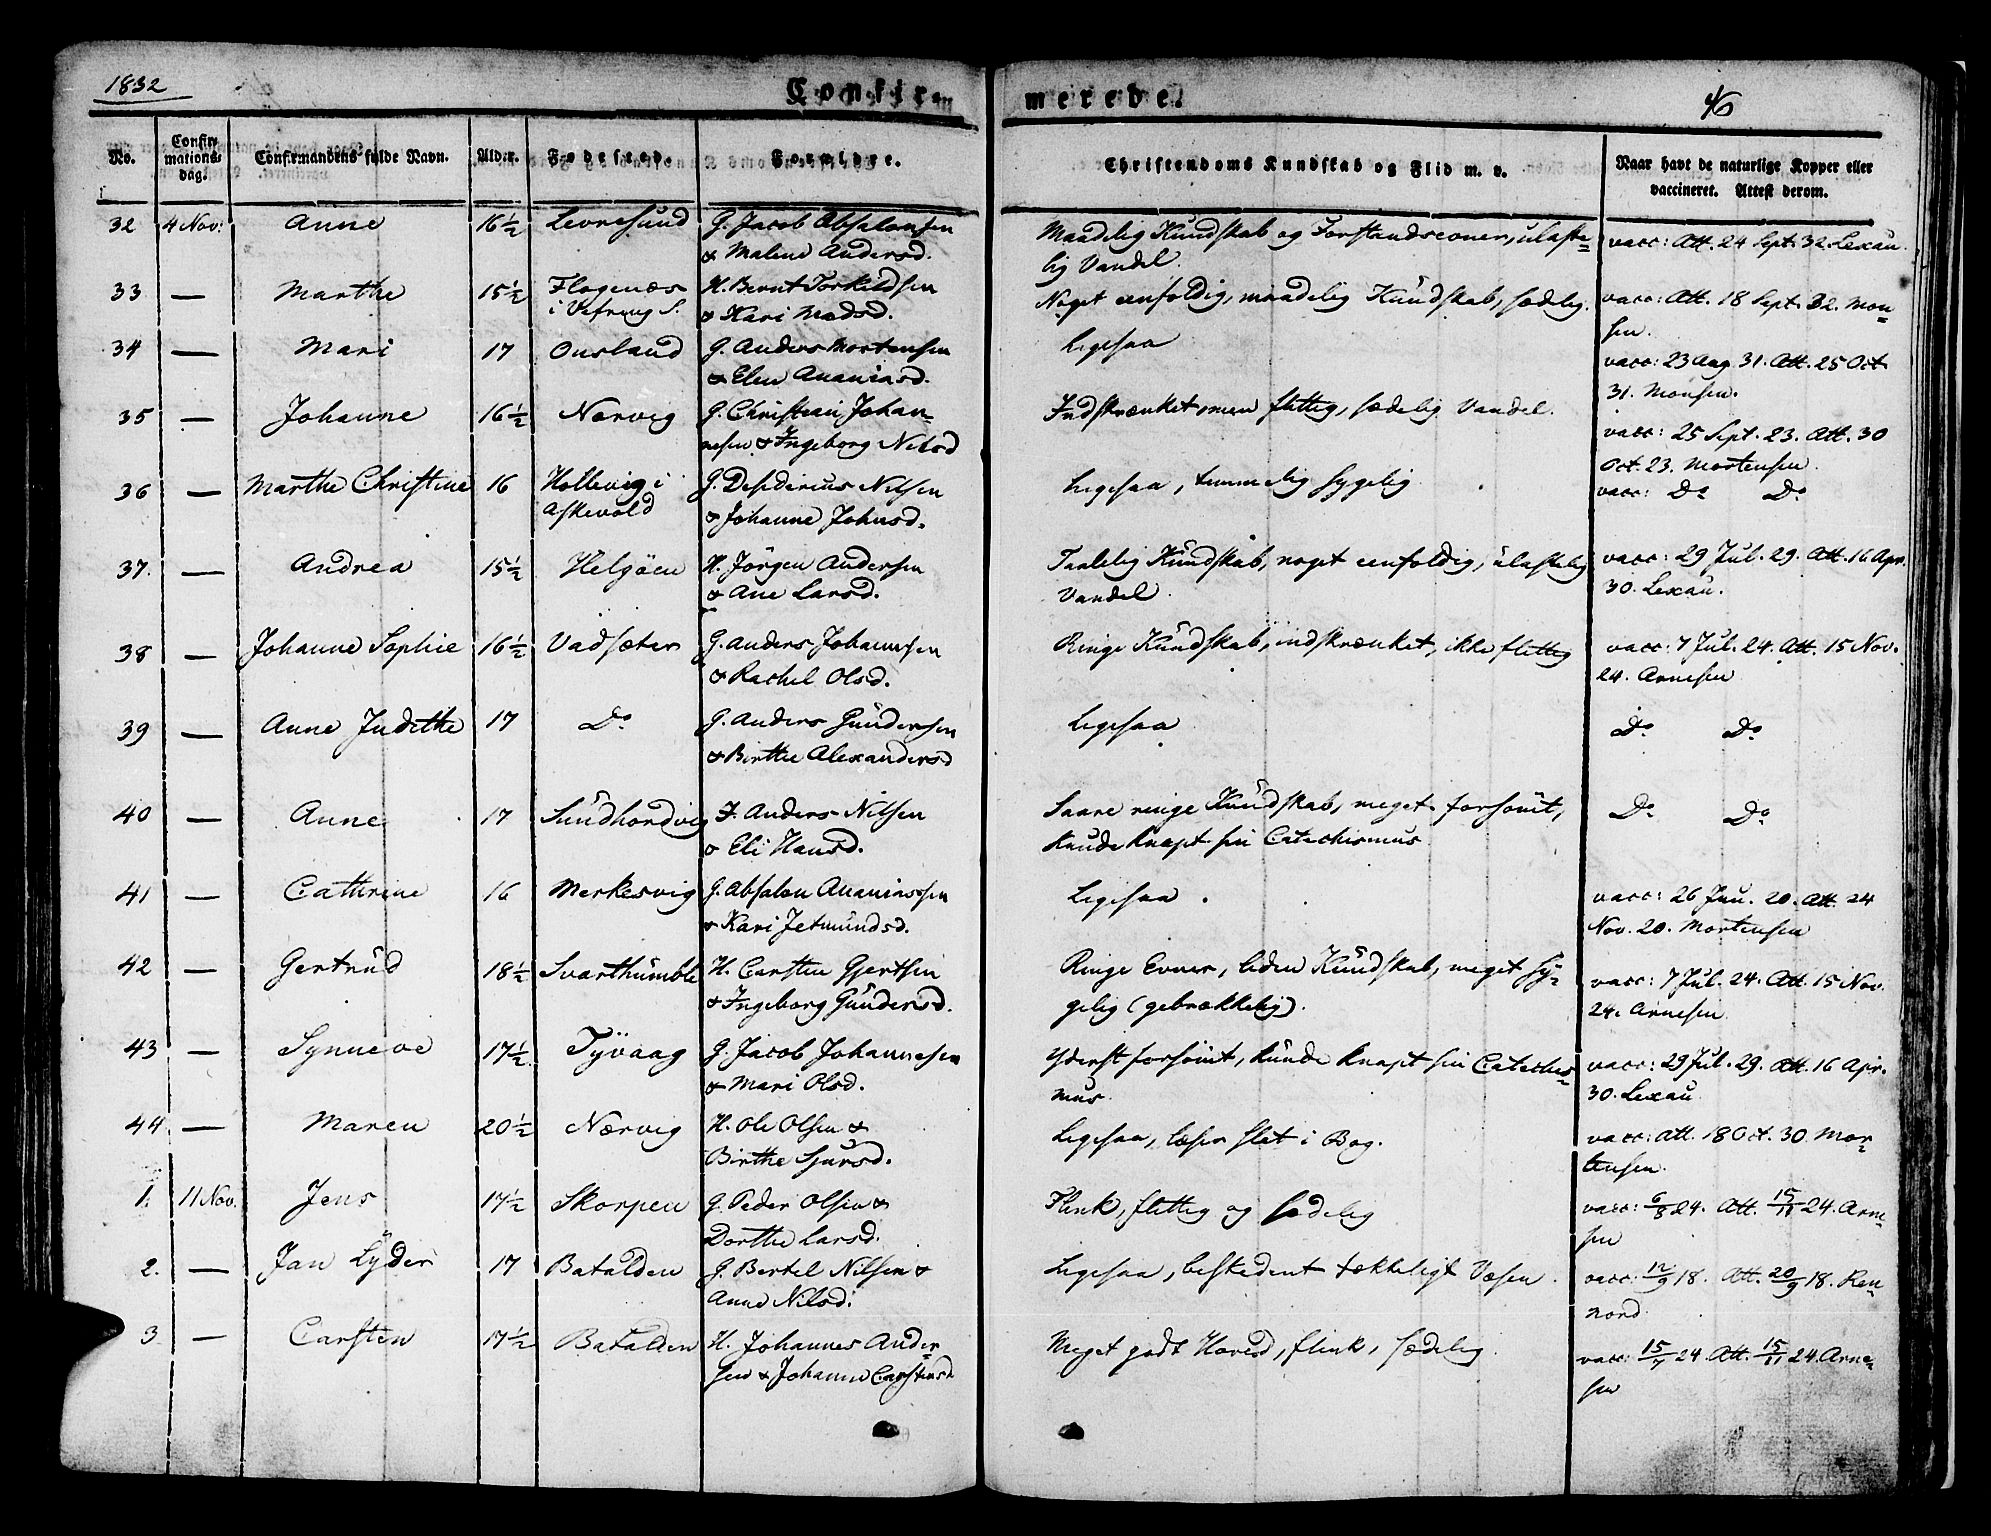 1832
Confir-
merede.
46
No.
Confir-
mations-
dag.
Confirmandens fulde Navn.
Alder.
Fødested.
Forældre.
Christendoms Kundskab og Flid m. v.
Naar havt de naturlige Kopper eller
vaccineret. Attest derom.
32 4 Nov: Anne 16½ Levresund G. Jacob Absalonsen Maadelig Kundskab og Forstandsevner, ulaste= vacc: Att. 24 Sept. 32 Lexau.
& Malene Andersd. lig Vandel.
33 — Marthe 15½ Flogenæs H. Bernt Torkildsen Noget eenfoldig, maadelig Kundskab, sædelig. vacc: Att. 18 Sept. 32. Mon=
i Vefring S. & Kari Madsd. sen.
34 — Mari 17 Ousland G. Anders Mortensen Ligesaa vacc: 23 Aug. 31. Att. 25 Oct
& Elen Ananiasd. 31. Monsen.
35 — Johanne 16½ Nærvig G. Christian Johan= Indskrænket, men flittig, sædelig Vandel. vacc: 25 Sept. 23. Att. 30
nesen & Ingeborg Nilsd Oct. 23. Mortensen.
36 — Marthe Christine 16 Hollevig i G. Desiderius Nilsen Ligesaa, temmelig sygelig vacc: Do Do
Askevold & Johanne Johnsd.
37. — Andrea 15½ Helgöen H. Jörgen Andersen Taalelig Kundskab, noget eenfoldig, ulastelig vacc: 29 Jul. 29. Att. 16 Apr.
& Ane Larsd. Vandel. 30. Lexau.
38 — Johanne Sophie 16½ Vadsæter G. Anders Johannesen Ringe Kundskab, indskrænket, ikke flittig vacc: 7 Jul. 24. Att. 15 Nov.
& Rachel Olsd. 24. Arnesen
39 — Anne Judithe 17 Do G. Anders Gundersen Ligesaa Do Do
& Birthe Alexandersd
40 — Anne 17 Sundhordvig I. Anders Nilsen Saare ringe Kundskab, meget forsömt, Do Do
& Eli Hansd. kunde knapt sin Catechismus
41 — Cathrine 16 Merkesvig G. Absalon Ananiassen Ligesaa. vacc: 26 Jun. 20. Att. 24
& Kari Jetmundsd. Nov. 20. Mortensen
42 — Gertrud 18½ Svarthumle H. Carsten Gjertsen Ringe Evner, liden Kundskab, meget sy= vacc: 7 Jul. 24. Att. 15 Nov.
& Ingeborg Gundersd. gelig (gebrækkelig). 24. Arnesen
43 — Synneve 17½ Tyvaag G. Jacob Johannesen Yderst forsömt, kunde knapt sin Catechis= vacc: 29 Jul. 29. Att. 16 Apr.
& Mari Olsd. mus. 30. Lexau
44 — Maren 20½ Nærvig H. Ole Olsen & Ligesaa, læser slet i Bog. vacc: Att. 18 Oct. 30. Mor=
Birthe Sjursd. tensen.
1. 11 Nov. Jens 17½ Skorpen G. Peder Olsen & Flink, flittig og sædelig vacc: 6/8 24. Att. 15/11 24. Arne=
Dorthe Larsd. sen
2. — Jan Lyder 17 Batalden G. Bertel Nilsen & Ligesaa, beskedent tækkeligt Væsen. vacc: 12/9 18. Att. 20/9 18. Ren=
Anne Nilsd. nord
3 — Carsten 17½ Batalden H. Johannes Ander= Meget godt Hoved, flink, sædelig. vacc: 15/7 24. Att. 15/11 24. Arne=
sen & Johanne Carstensd. sen